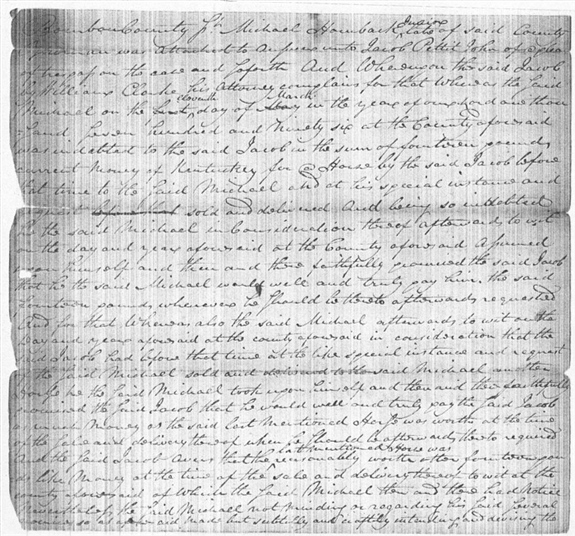 Bourbon County Sct. Michael Hornback Junior late of said County
yeoman was attached to answer unto Jacob Pettit John of a plea
of trespass on the case and so forth And Whereupon the said Jacob
by William Clarke his Attorney complains for that Whereas the said
Michael on the eleventh day of March in the year of our lord one thou
sand seven hundred and Ninety six at the County aforesaid
was indebted to the said Jacob in the sum of fourteen pounds
current money of Kentuckey for a Horse by the said Jacob before
that time to the said Michael and at his special instance and
request sold and delivered And being so indebted
he the said Michael in Consideration thereof afterwards to wit
on the day and year aforesaid at the County aforesaid assumed
upon himself and then and there faithfully promised the said Jacob
that he the said Michael would well and truly pay him the said
fourteen pounds whenever he should be thereto afterwards requested
And for that Whereas also the said Michael afterwards to wit on the
day and year aforesaid at the county aforesaid in consideration that the
said Jacob had before that time at the like special instance and request
of the said Michael sold and delivered to the said Michael another
Horse he the said Michael took upon himself and then and there faithfully
promised the said Jacob that he would well and truly pay the said Jacob
as much Money as the said last mentioned Horse was worth at the time
of the sale and delivery thereof when he should be afterwards thereto required
And the said Jacob avers that the last mentioned Horse was reasonably worth other fourteen pounds
of like Money at the time of the sale and delivery thereof to wit at the
county aforesaid of Which the said Michael then and there had notice
Nevertheless the said Michael not minding or regarding his said several
promises so as aforesaid made but subtilly and craftily intending and devising the